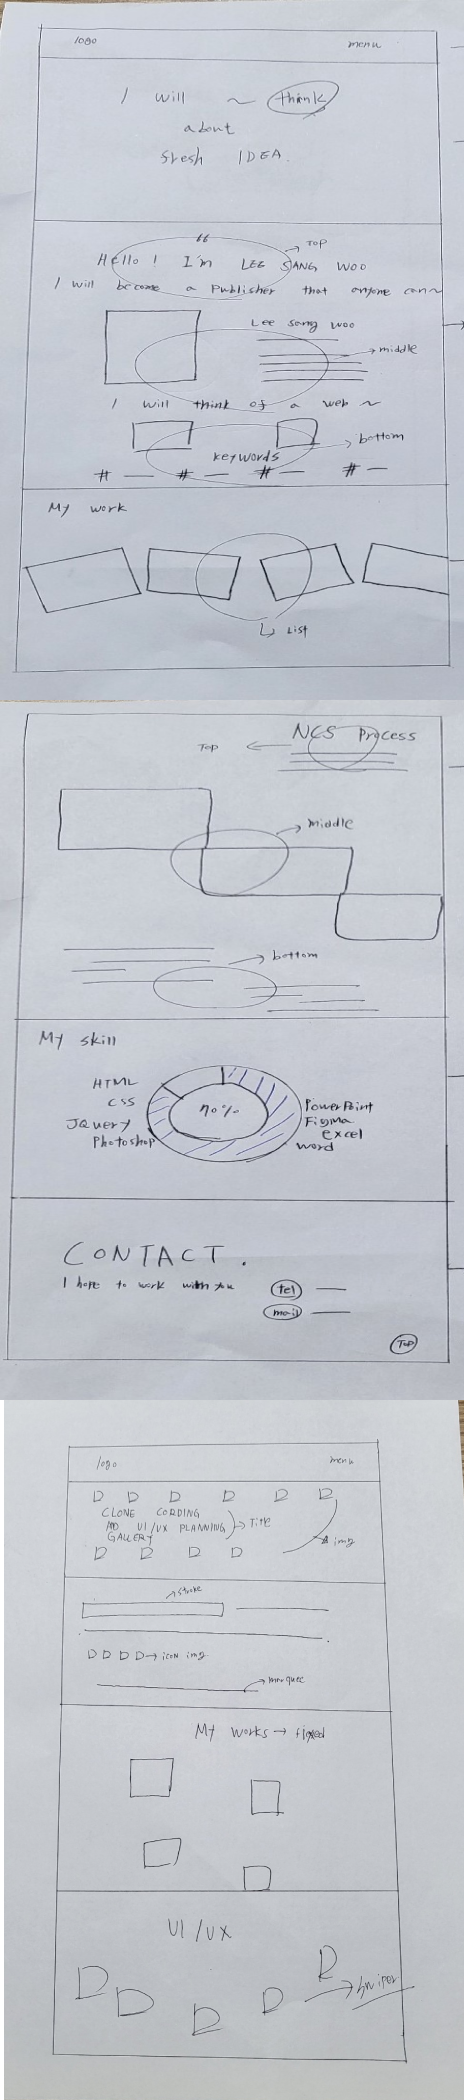 logo menu
I will ~ think
about
fresh IDEA.
“
TOP
Hello! I'm LEE SANG WOO
I will become a publisher that anyone can~
Lee Sang woo
middle
I will think of a web ~
bottom
keywords
# — # — # — # —
My work
List
NCS Process
TOP
middle
bottom
My skill
HTML
CSS
JQuery
Photoshop
70%
PowerPoint
Figma
excel
word
CONTACT.
I hope to work with you
tel
mail
TOP
logo menu
CLONE CORDING
UI/UX PLANNING
GALLERY
Title
img
stroke
icon img
marquee
My works → fixed
UI/UX
Swiper